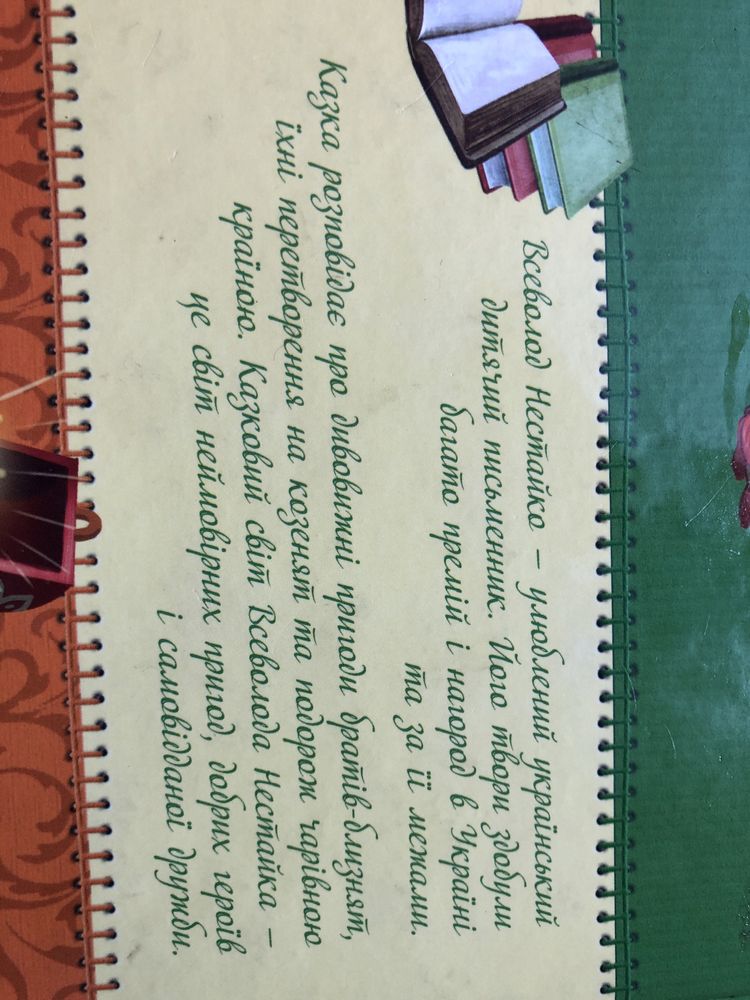 Всеволод Нестайко – улюблений український
дитячий письменник. Його твори здобули
багато премій і нагород в Україні
та за її межами.
Казка розповідає про дивовижні пригоди братів-близнят,
їхні перетворення на козенят та подорож чарівною
країною. Казковий світ Всеволода Нестайка –
це світ неймовірних пригод, добрих героїв
і самовідданої дружби.